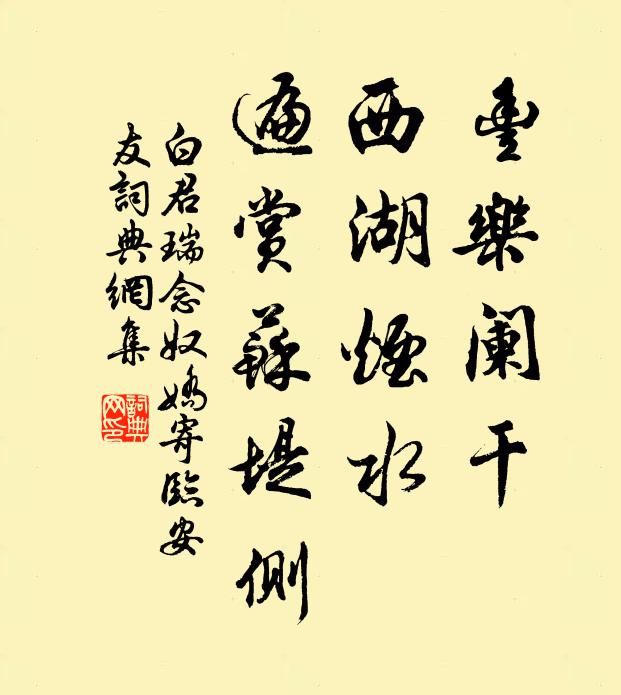 豐樂阑干
西湖煙水
遍賞蘇堤側
白君瑞念奴嬌寄臨安
友詞典網集
詞典
网印